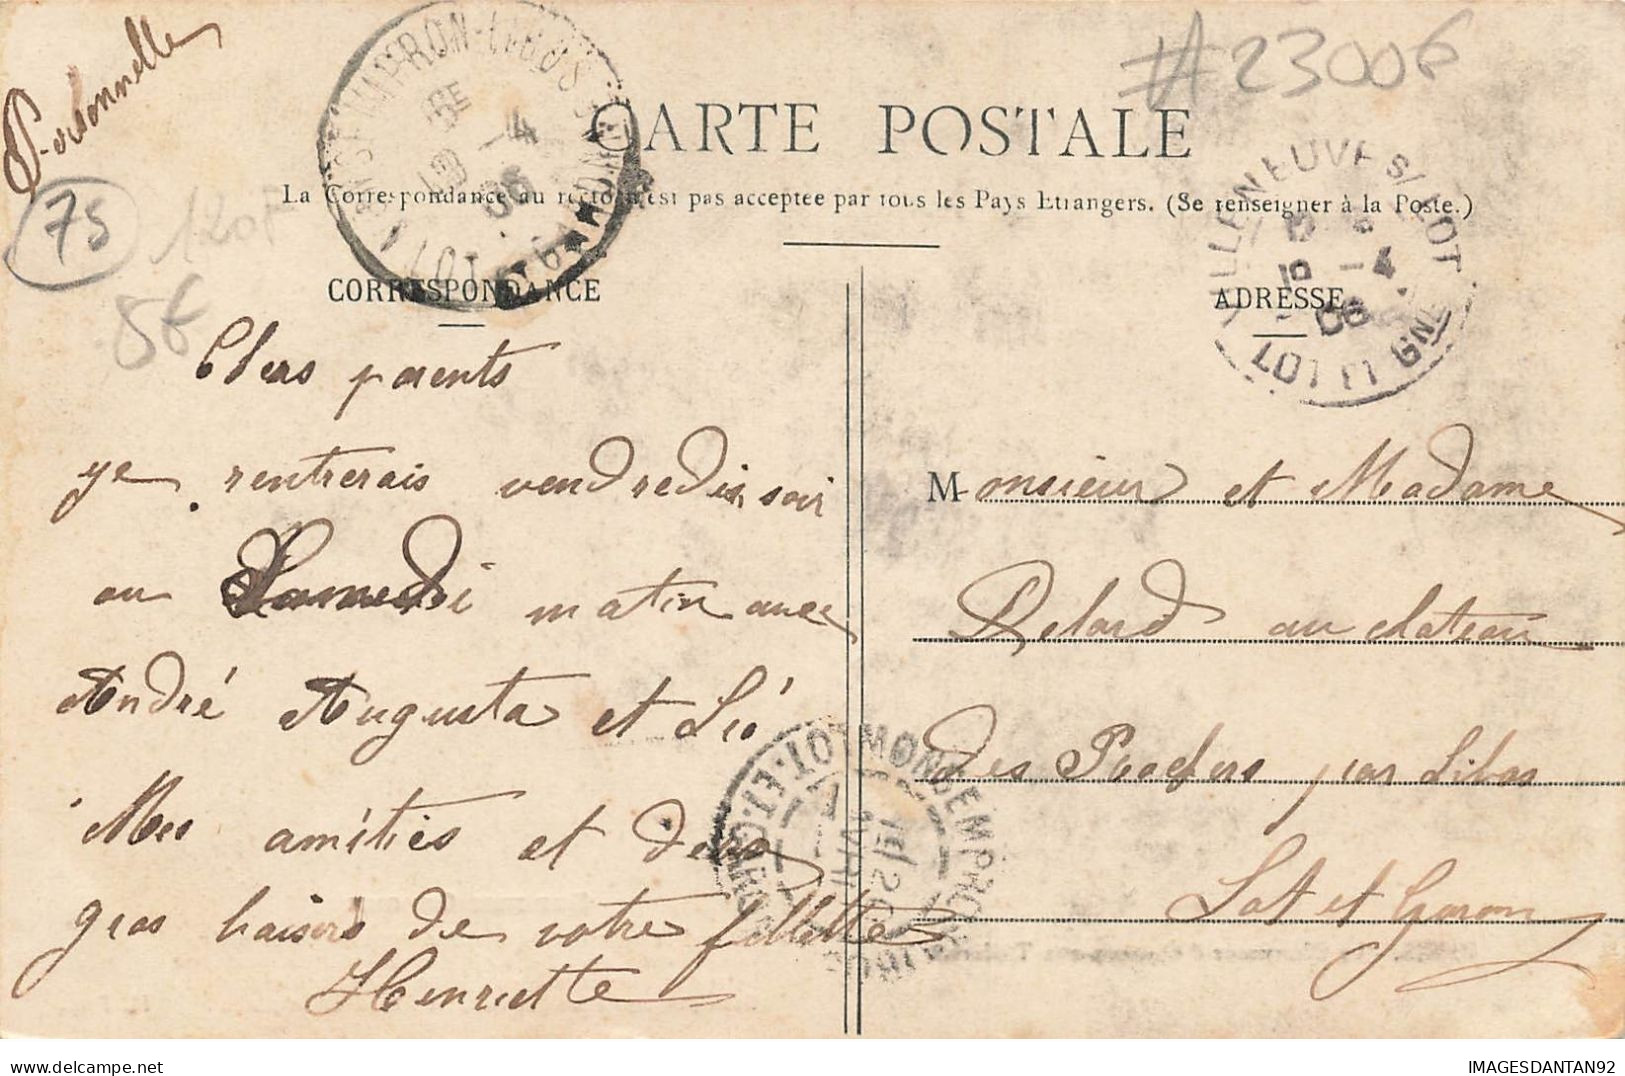 Personnelle
#23006
75
120F
8€
CARTE POSTALE
La Correspondance au recto n'est pas acceptée par tous les Pays Etrangers. (Se renseigner à la Poste.)
MONSEMPRON-LIBOS
LOT-ET-GARONNE
-4
06
VILLENEUVE S/ LOT
-4
06
LOT ET GNE
CORRESPONDANCE
ADRESSE
Chers parents
je rentrerais vendredi soir
ou Samedi matin avec
André Augusta et Léo
Mes amitiés et deux
gros baisers de votre fillette
Henriette
Monsieur et Madame
Delard au chateau
des par Libos
Lot et Garonne
MONSEMPRON-LIBOS
LOT-ET-GARONNE
IMAGESDANTAN92